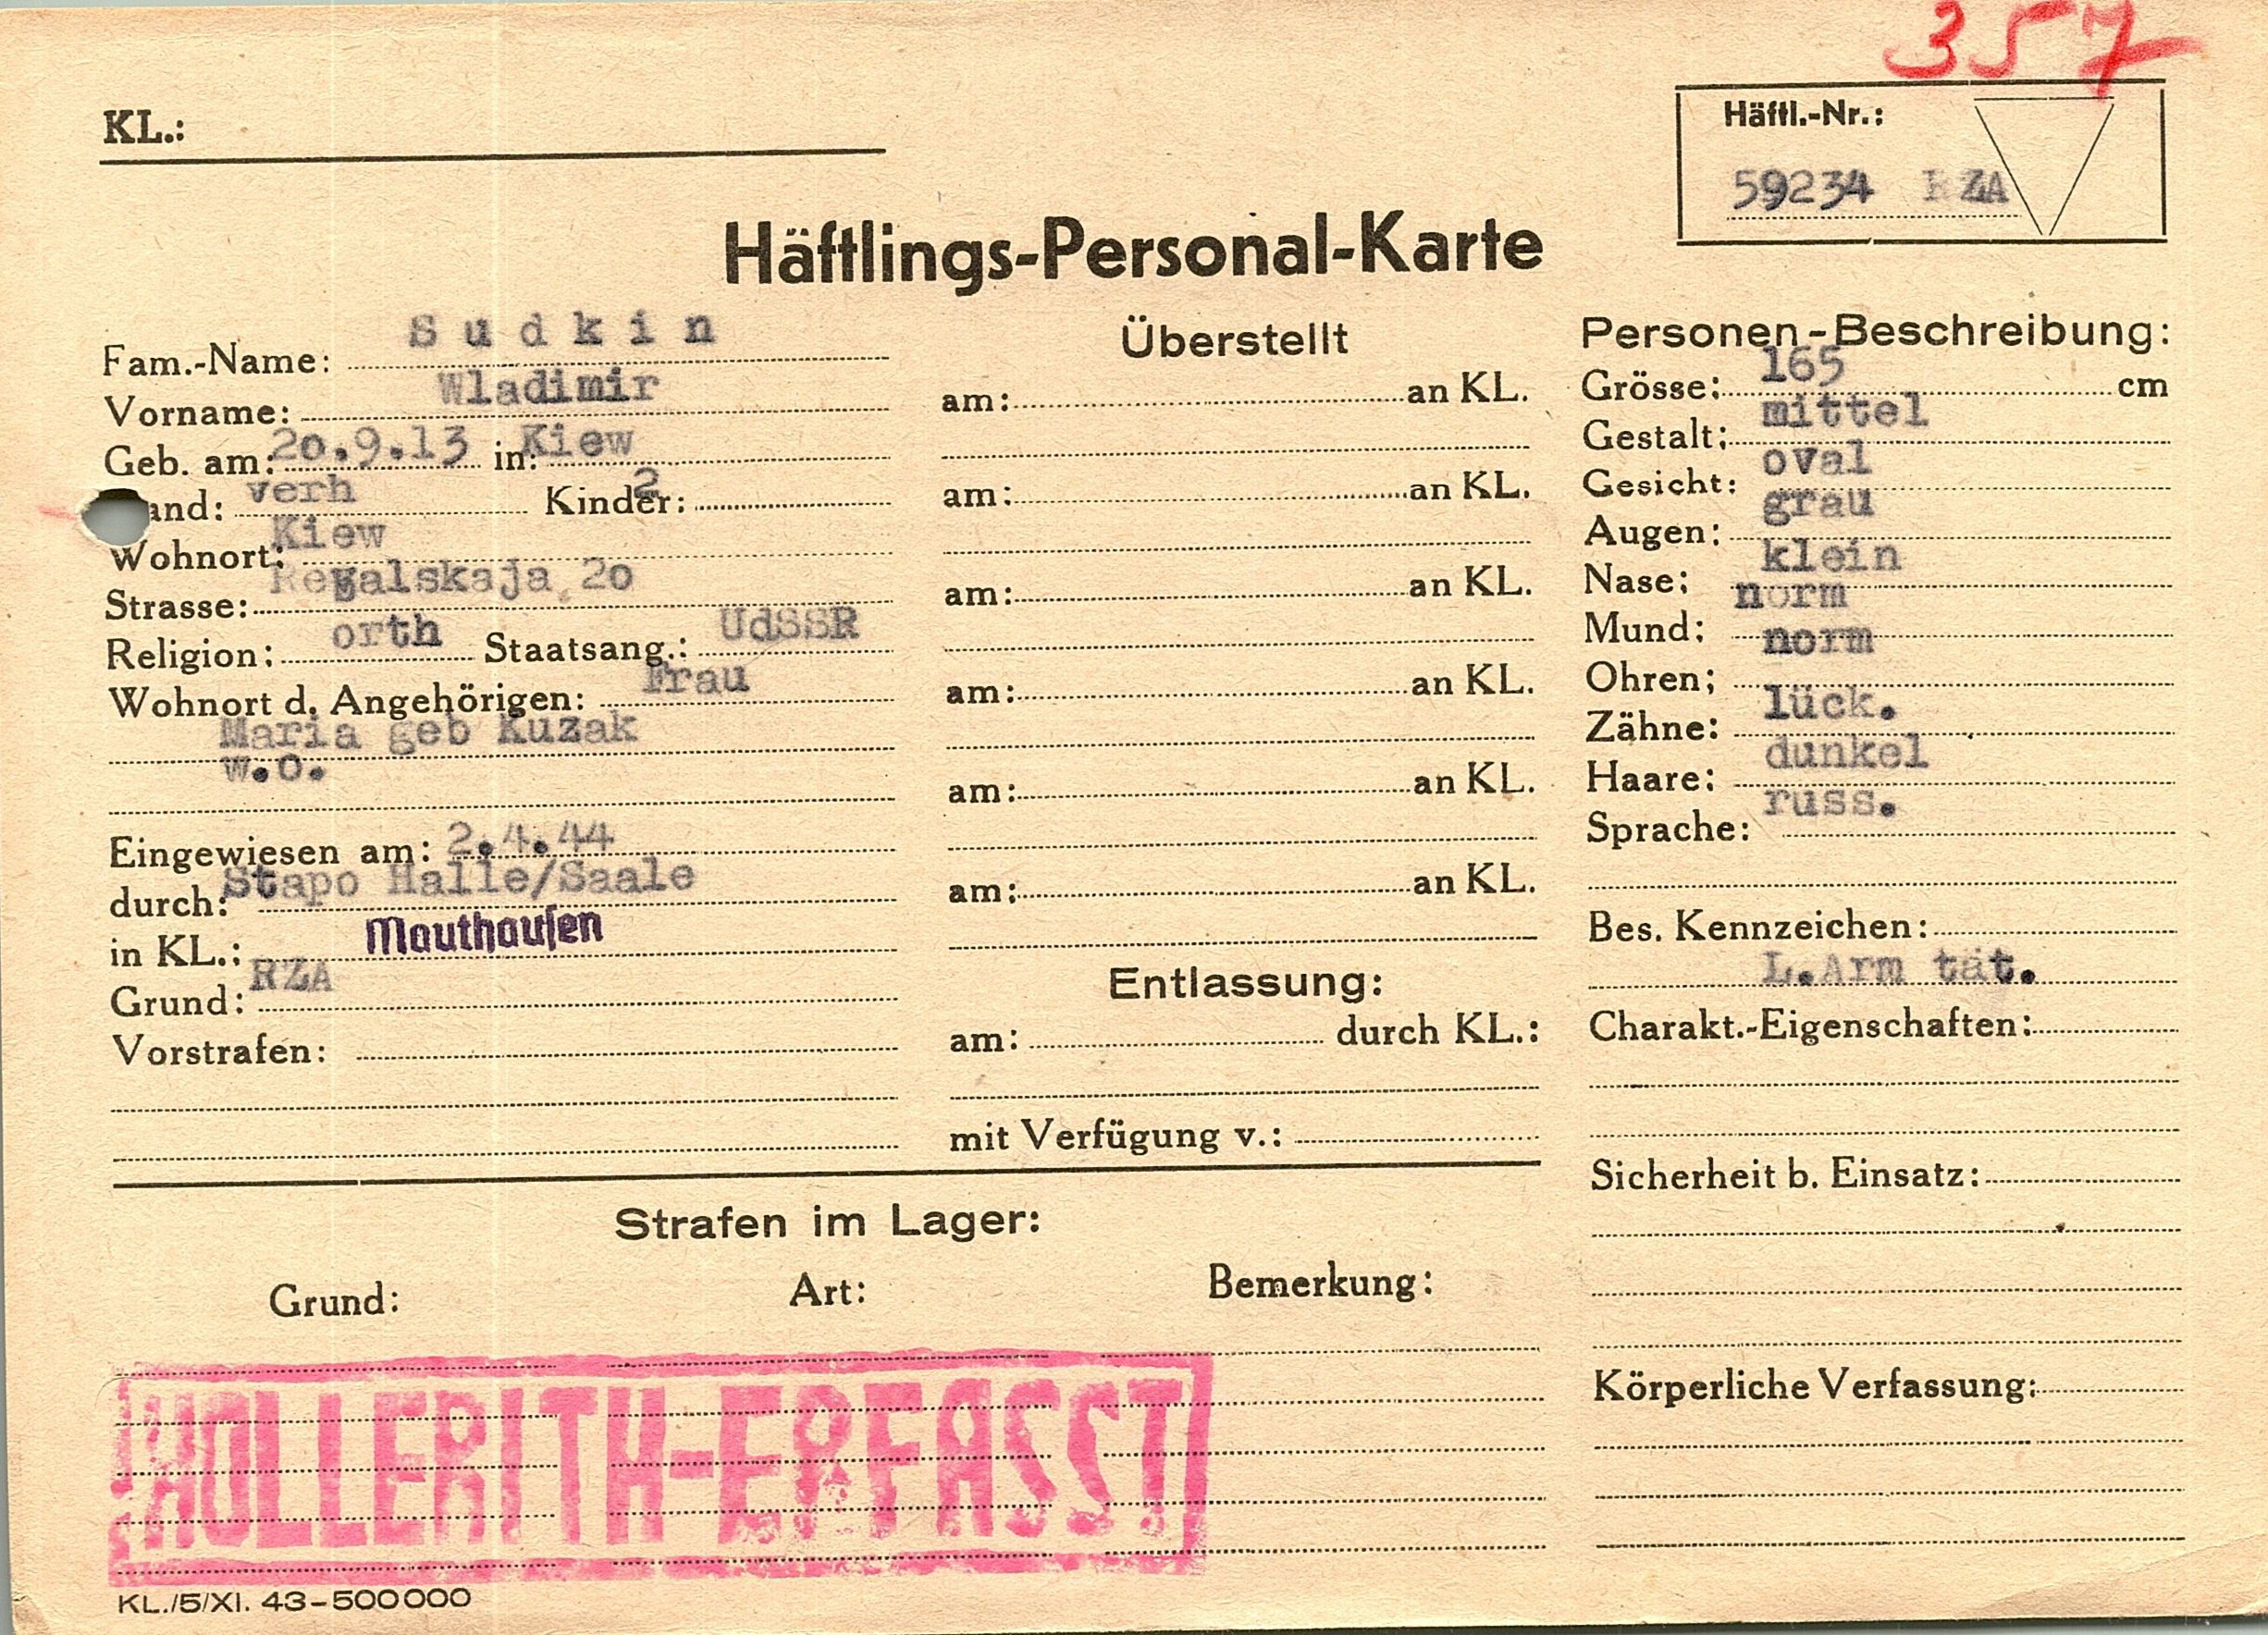 357
KL.:
Häftl.-Nr.:
59234 RZA
Häftlings-Personal-Karte
Fam.-Name: Sudkin
Vorname: Wladimir
Geb. am: 20.9.13 in: Kiew
and: verh Kinder: 2
Wohnort: Kiew
Strasse: 20
Religion: orth Staatsang.: UdSSR
Wohnort d. Angehörigen: Frau
Maria geb Kuzak
w.o.
Eingewiesen am: 2.4.44
durch: Stapo Halle/Saale
in KL.: Mauthausen
Grund: RZA
Vorstrafen:
Überstellt
am: an KL.
am: an KL.
am: an KL.
am: an KL.
am: an KL.
am: an KL.
Entlassung:
am: durch KL.:
mit Verfügung v.:
Personen-Beschreibung:
Grösse: 165 cm
Gestalt: mittel
Gesicht: oval
Augen: grau
Nase: klein
Mund: norm
Ohren: norm
Zähne: lück.
Haare: dunkel
Sprache: russ.
Bes. Kennzeichen:
L.Arm tät.
Charakt.-Eigenschaften:
Sicherheit b. Einsatz:
Körperliche Verfassung:
Strafen im Lager:
Grund: Art: Bemerkung:
HOLLERITH-ERFASST
KL./5/XI. 43-500000